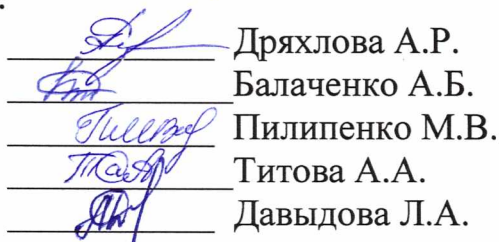 Дряхлова А.Р.
Балаченко А.Б.
Пилипенко М.В.
Титова А.А.
Давыдова Л.А.